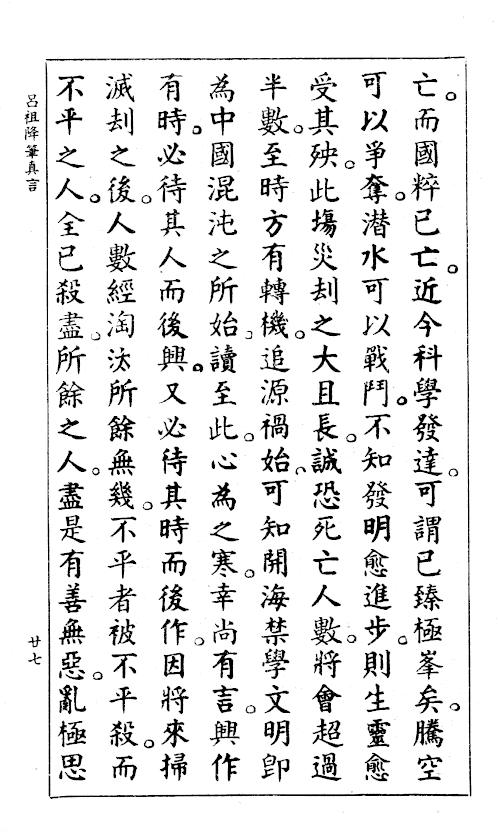 亡。而國粹已亡。近今科學發達。可謂已臻極峯矣。騰空
可以爭奪。潜水可以戰鬥。不知發明愈進步。則生靈愈
受其殃。此塲災刦之大且長。誠恐死亡人數。將會超過
半數。至時方有轉機。追源禍始。可知開海禁學文明卽
為中國混沌之所始。讀至此。心為之寒。幸尚有言。興作
有時。必待其人而後興。又必待其時而後作。因將來掃
滅刦之後。人數經淘汰所餘無幾。不平者被不平殺。而
不平之人。全已殺盡。所餘之人。盡是有善無惡。亂極思
呂祖降筆真言
廿七